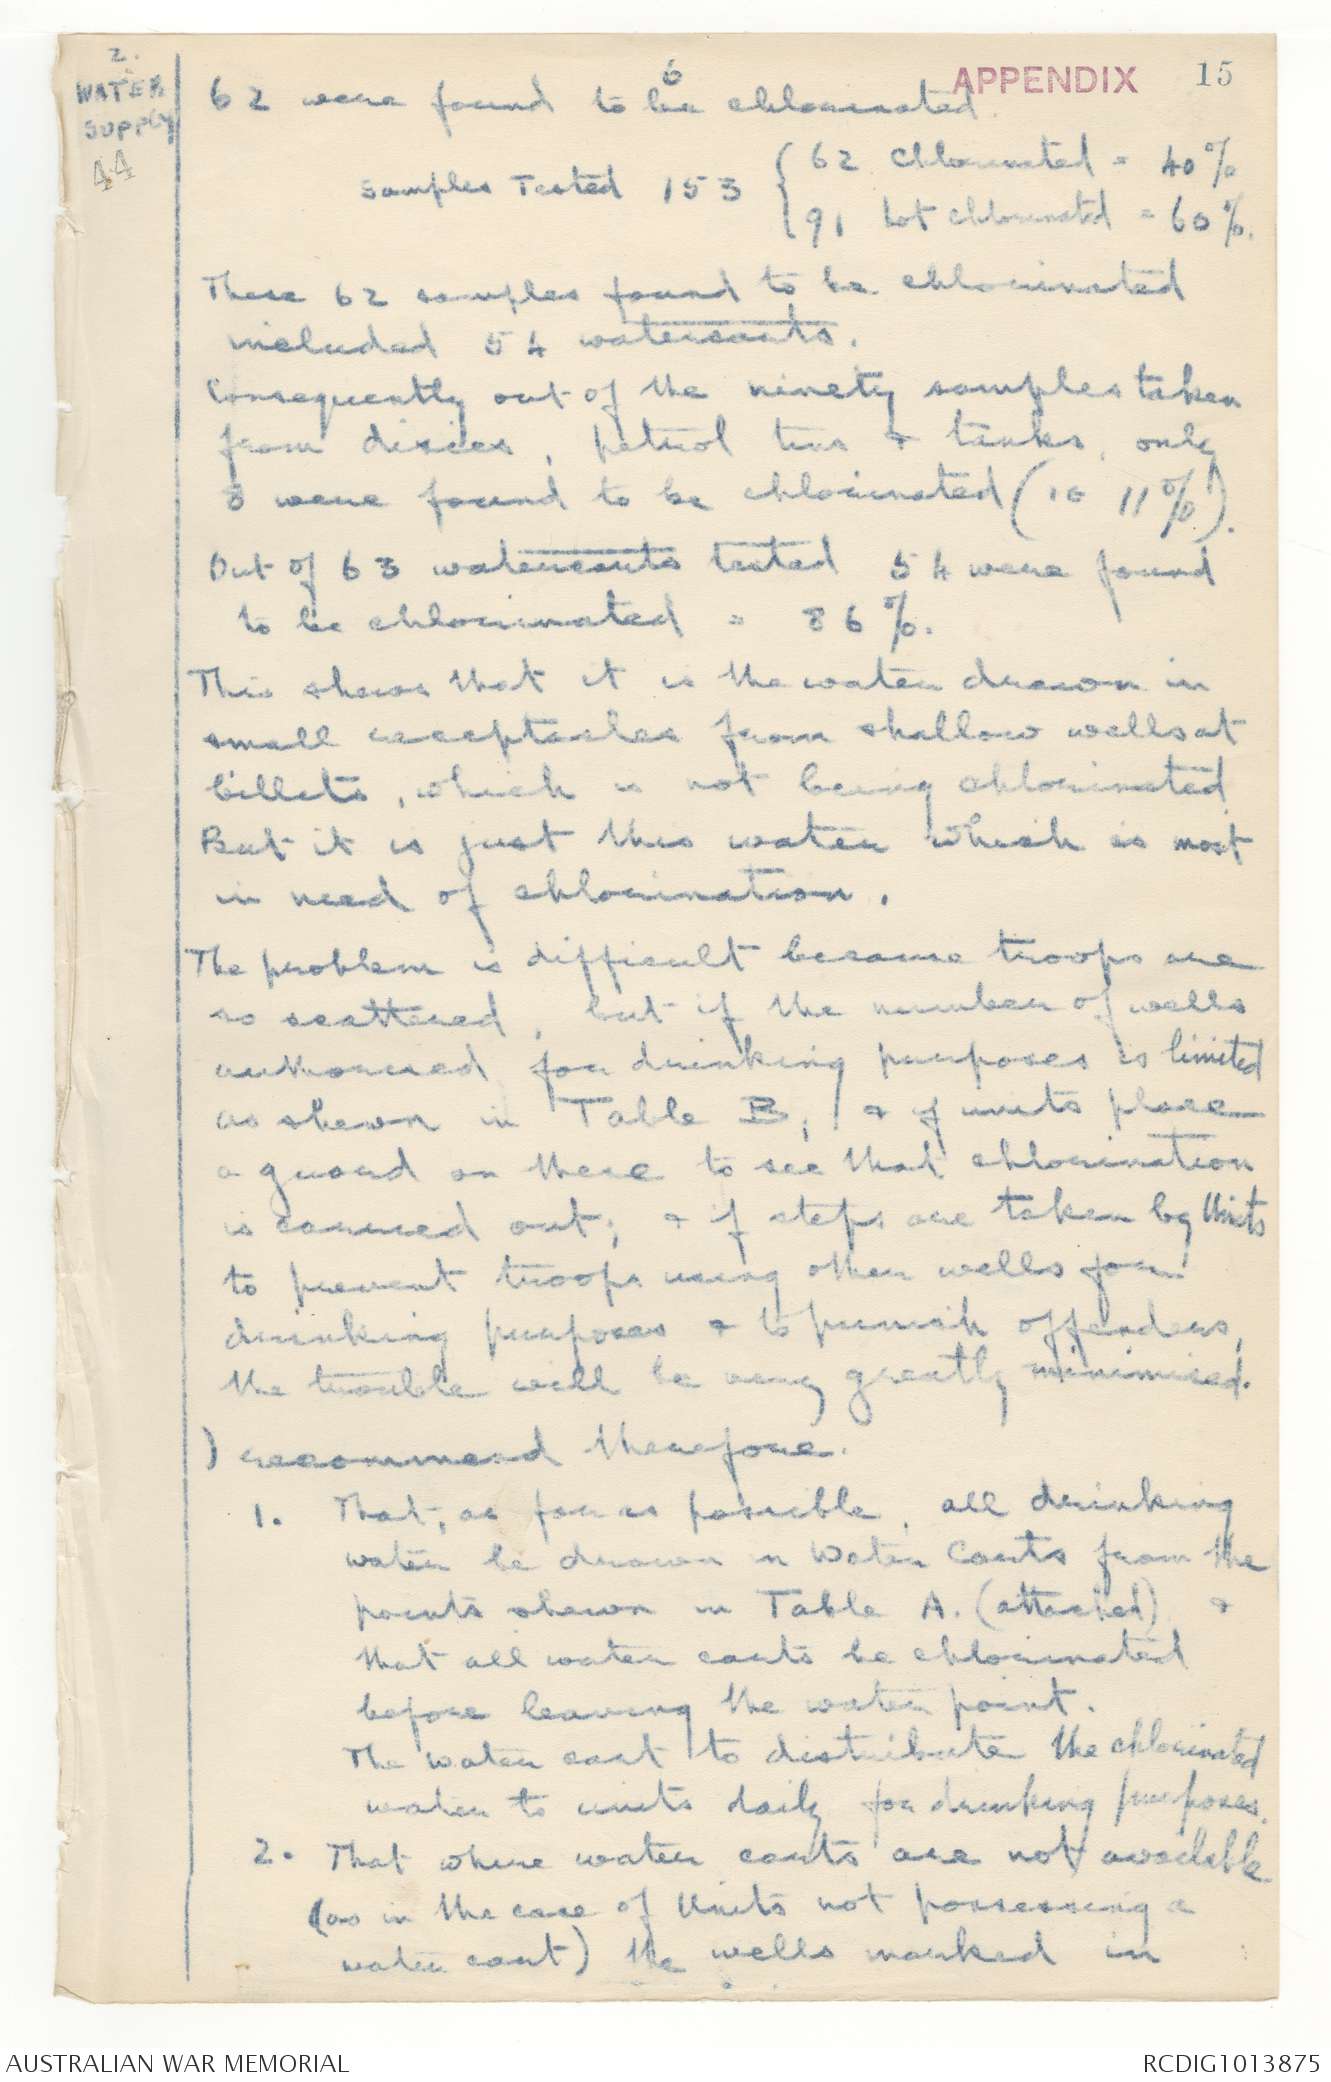 2.
WATER
SUPPLY
44
6
APPENDIX 15
62 were found to be chlorinated.
Samples Tested 153 { 62 Chlorinated = 40%
91 Not chlorinated = 60%.
These 62 samples found to be chlorinated
included 54 watercarts.
Consequently out of the ninety samples taken
from dixies, petrol tins & tanks, only
8 were found to be chlorinated (ie 11%).
Out of 63 watercarts tested 54 were found
to be chlorinated = 86%.
This shews that it is the water drawn in
small receptacles from shallow wells at
billets, which is not being chlorinated.
But it is just this water which is most
in need of chlorination.
The problem is difficult because troops are
so scattered, but if the number of wells
authorised for drinking purposes is limited
as shewn in Table B, & if units place
a guard on these to see that chlorination
is carried out; & if steps are taken by Units
to prevent troops using other wells for
drinking purposes & to punish offenders,
the trouble will be very greatly minimised.
I recommend therefore.
1. That, as far as possible, all drinking
water be drawn in Water Carts from the
points shewn in Table A. (attached) &
that all water carts be chlorinated
before leaving the water point.
The water cart to distribute the chlorinated
water to units daily for drinking purposes.
2. That where water carts are not available
(as in the case of Units not possessing a
water cart) the wells marked in
AUSTRALIAN WAR MEMORIAL
RCDIG1013875